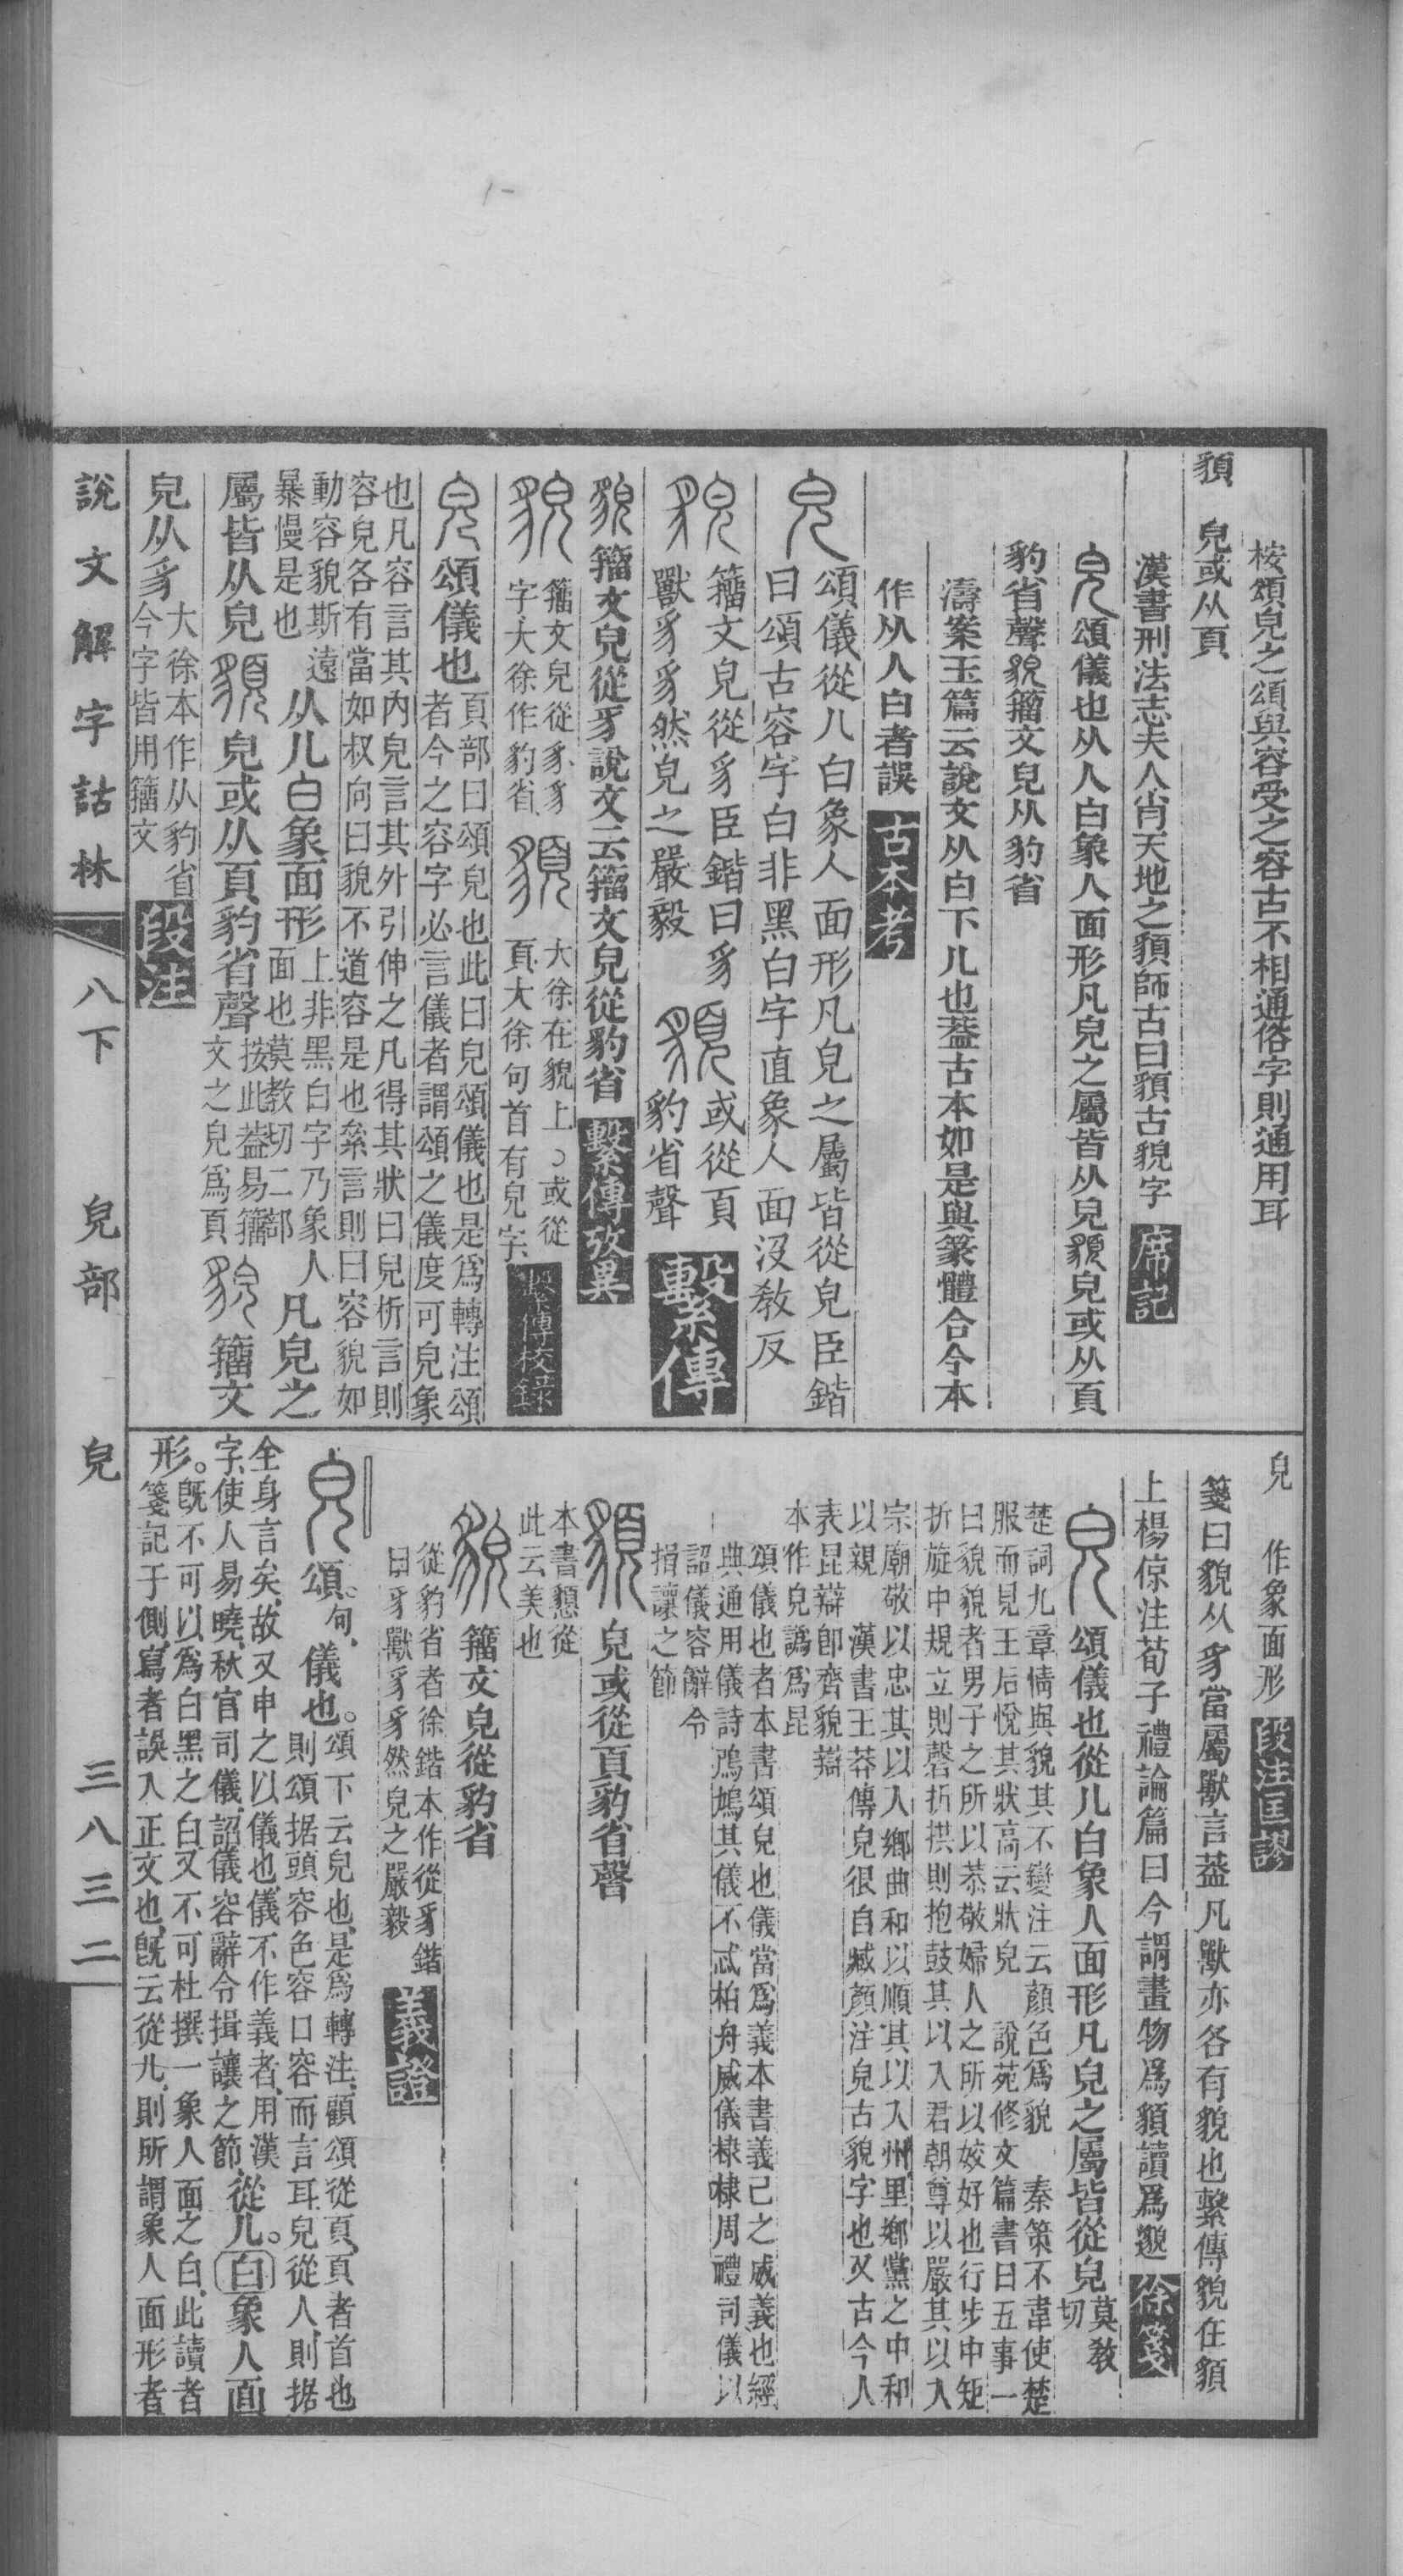 桉頌皃之頌與容受之容古不相通俗字則通用耳
䫉　皃或从頁
漢書刑法志夫人肖天地之䫉師古曰䫉古貌字 席記
皃頌儀也从人白象人面形凡皃之屬皆从皃䫉皃或从頁
豹省聲貌籀文皃从豹省
濤案玉篇云說文从白下儿也葢古本如是與篆體合今本
作从人白者誤 古本考
皃 頌儀從儿白象人面形凡皃之屬皆從皃臣鍇
曰頌古容字白非黑白字直象人面沒敎反
貌 籀文皃從豸臣鍇曰豸
獸豸豸然皃之嚴毅 䫉 或從頁
豹省聲 繫傳
貌籀文皃從豸說文云籀文皃從豹省 繫傳攷異
貌 籀文皃從豸、豸
字、大徐作豹省、 䫉 大徐在貌上、或從
頁、大徐句首有皃字、 繫傳校錄
皃頌儀也 頁部曰頌皃也此曰皃頌儀也是爲轉注頌
者今之容字必言儀者謂頌之儀度可皃象
也凡容言其內皃言其外引伸之凡得其狀曰皃析言則
容皃各有當如叔向曰貌不道容是也絫言則曰容貌如
動容貌斯遠
暴慢是也 从儿白象面形 上非黑白字乃象人
面也莫教切二部 凡皃之
屬皆从皃䫉皃或从頁豹省聲 按此葢易籀
文之皃爲頁 貌籀文
皃从豸 大徐本作从豹省
今字皆用籀文 段注
皃　作象面形 段注匡謬
箋曰貌从豸當屬獸言葢凡獸亦各有貌也繫傳貌在䫉
上楊倞注荀子禮論篇曰今謂畫物爲䫉讀爲邈 徐箋
皃 頌儀也從儿白象人面形凡皃之屬皆從皃 莫敎
切
楚詞九章情與貌其不變注云顏色爲貌　秦策不韋使楚
服而見王后悅其狀高云狀皃　說苑修文篇書曰五事一
曰貌貌者男子之所以恭敬婦人之所以姣好也行步中矩
折旋中規立則磬折拱則抱鼓其以入君朝尊以嚴其以入
宗廟敬以忠其以入鄉曲和以順其以入州里鄉黨之中和
以親　漢書王莽傳皃很自臧顏注皃古貌字也又古今人
表昆辯卽齊貌辯
本作皃譌爲昆
頌儀也者本書頌皃也儀當爲義本書義己之威義也經
典通用儀詩鳲鳩其儀不忒柏舟威儀棣棣周禮司儀以
詔儀容辭令
揖讓之節
䫉 皃或從頁豹省聲
本書懇從
此云美也
貌 籀文皃從豹省
從豹省者徐鍇本作從豸鍇
曰豸獸豸豸然皃之嚴毅 義證
皃頌。句、儀也。 頌下云皃也、是爲轉注、顧頌從頁、頁者首也
則頌据頭容色容口容而言耳、皃從人、則据
全身言矣、故又申之以儀也、儀不作義者、用漢
字、使人易曉、秋官司儀、詔儀容辭令揖讓之節、 從儿。白象人面
形。 旣不可以爲白黑之白、又不可杜撰一象人面之白、此讀者
箋記于側、寫者誤入正文也、旣云從儿、則所謂象人面形者
說文解字詁林 八下　皃部　皃　三八三二